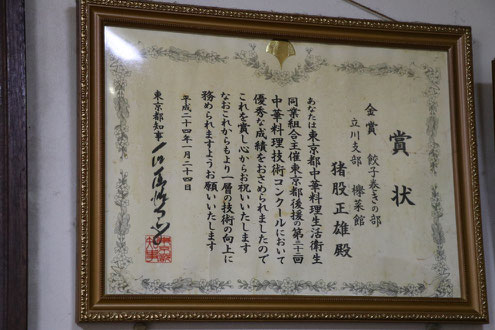 賞状
金賞 餃子巻きの部
立川支部 欅菜館
猪股正雄殿
あなたは東京都中華料理生活衛生
同業組合主催東京都後援の第三十一回
中華料理技術コンクールにおいて
優秀な成績をおさめられましたので
これを賞し心からお祝いいたします
なおこれからもより一層の技術の向上に
務められますようお願いいたします
平成二十四年一月二十四日
東京都知事